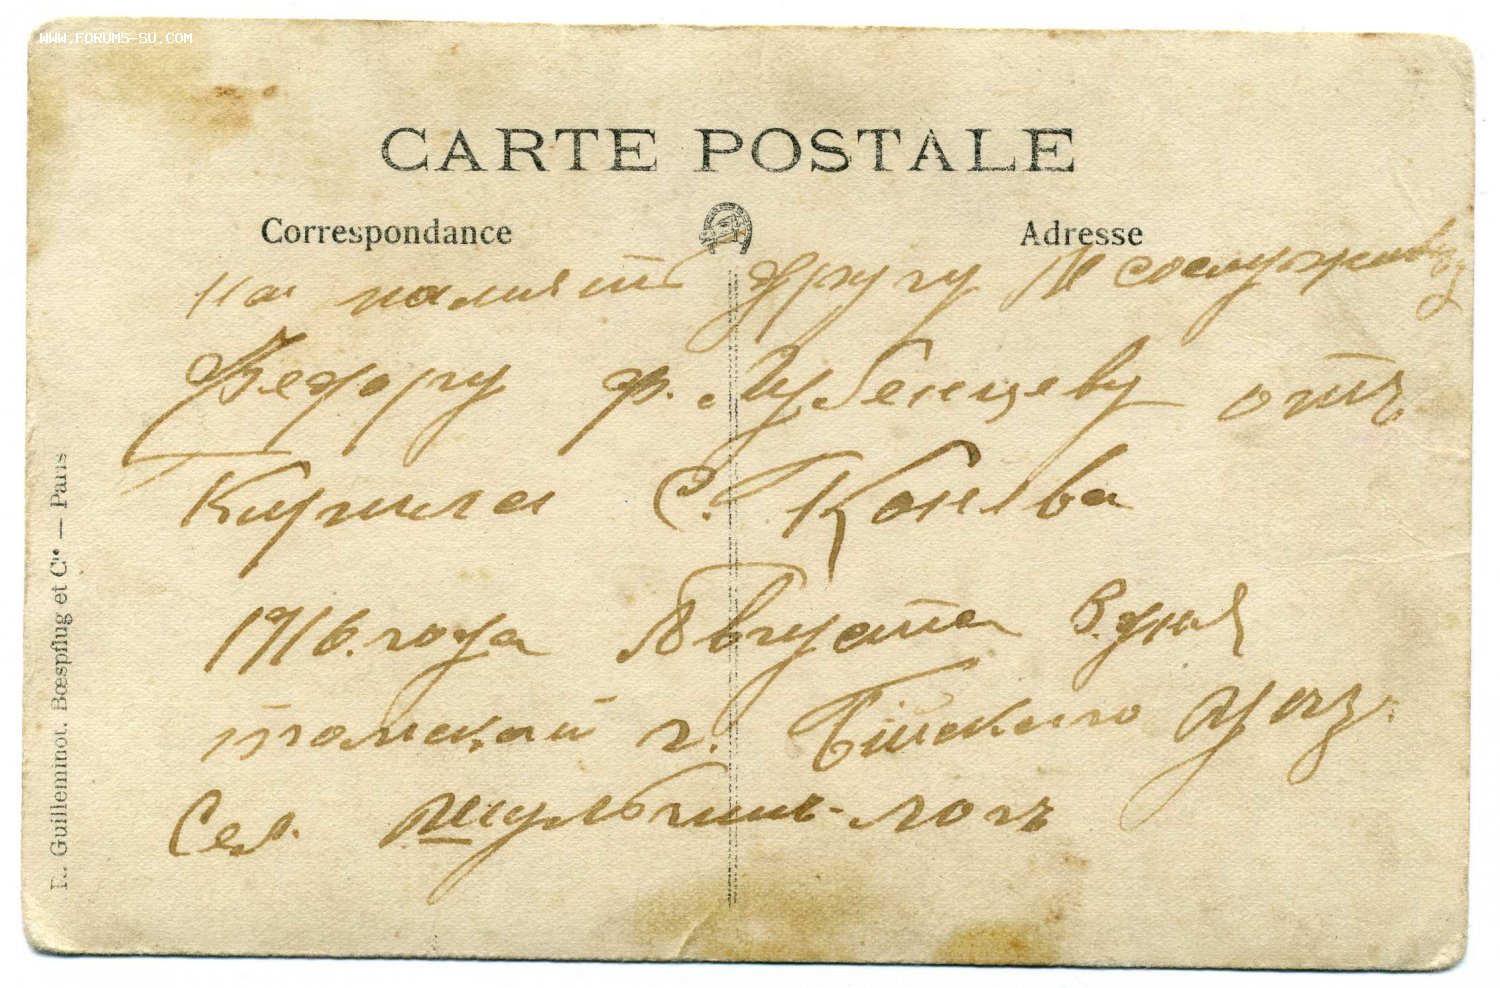 WWW.FORUMS-SU.COM
CARTE POSTALE
Correspondance
Adresse
на память другу И сослуживцу
Федору Ф. Лубенцеву отъ
Кирила С. Т. Конева
1916. года Августа 8. дня
томской г. Бійскаго Уез.
Сел. Шульгинъ-логъ
R. Guilleminot, Bœspflug et Cie — Paris